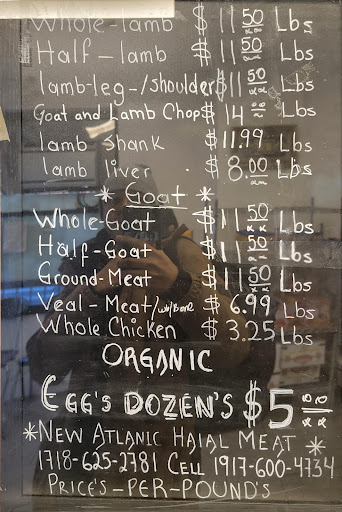 Whole-lamb $11.50 Lbs
Half-lamb $11.50 Lbs
lamb-leg-/shoulder $11.50 Lbs
Goat and Lamb Chop $14.00 Lbs
lamb shank $11.99 Lbs
lamb liver $8.00 Lbs
* Goat *
Whole-Goat $11.50 Lbs
Half-Goat $11.50 Lbs
Ground-Meat $11.50 Lbs
Veal-Meat/w/Bone $6.99 Lbs
Whole Chicken $3.25 Lbs
ORGANIC
EGG'S DOZEN'S $5.00
*NEW ATLANIC HALAL MEAT *
1718-625-2781 CELL 1917-600-4734
PRICE'S-PER-POUND'S